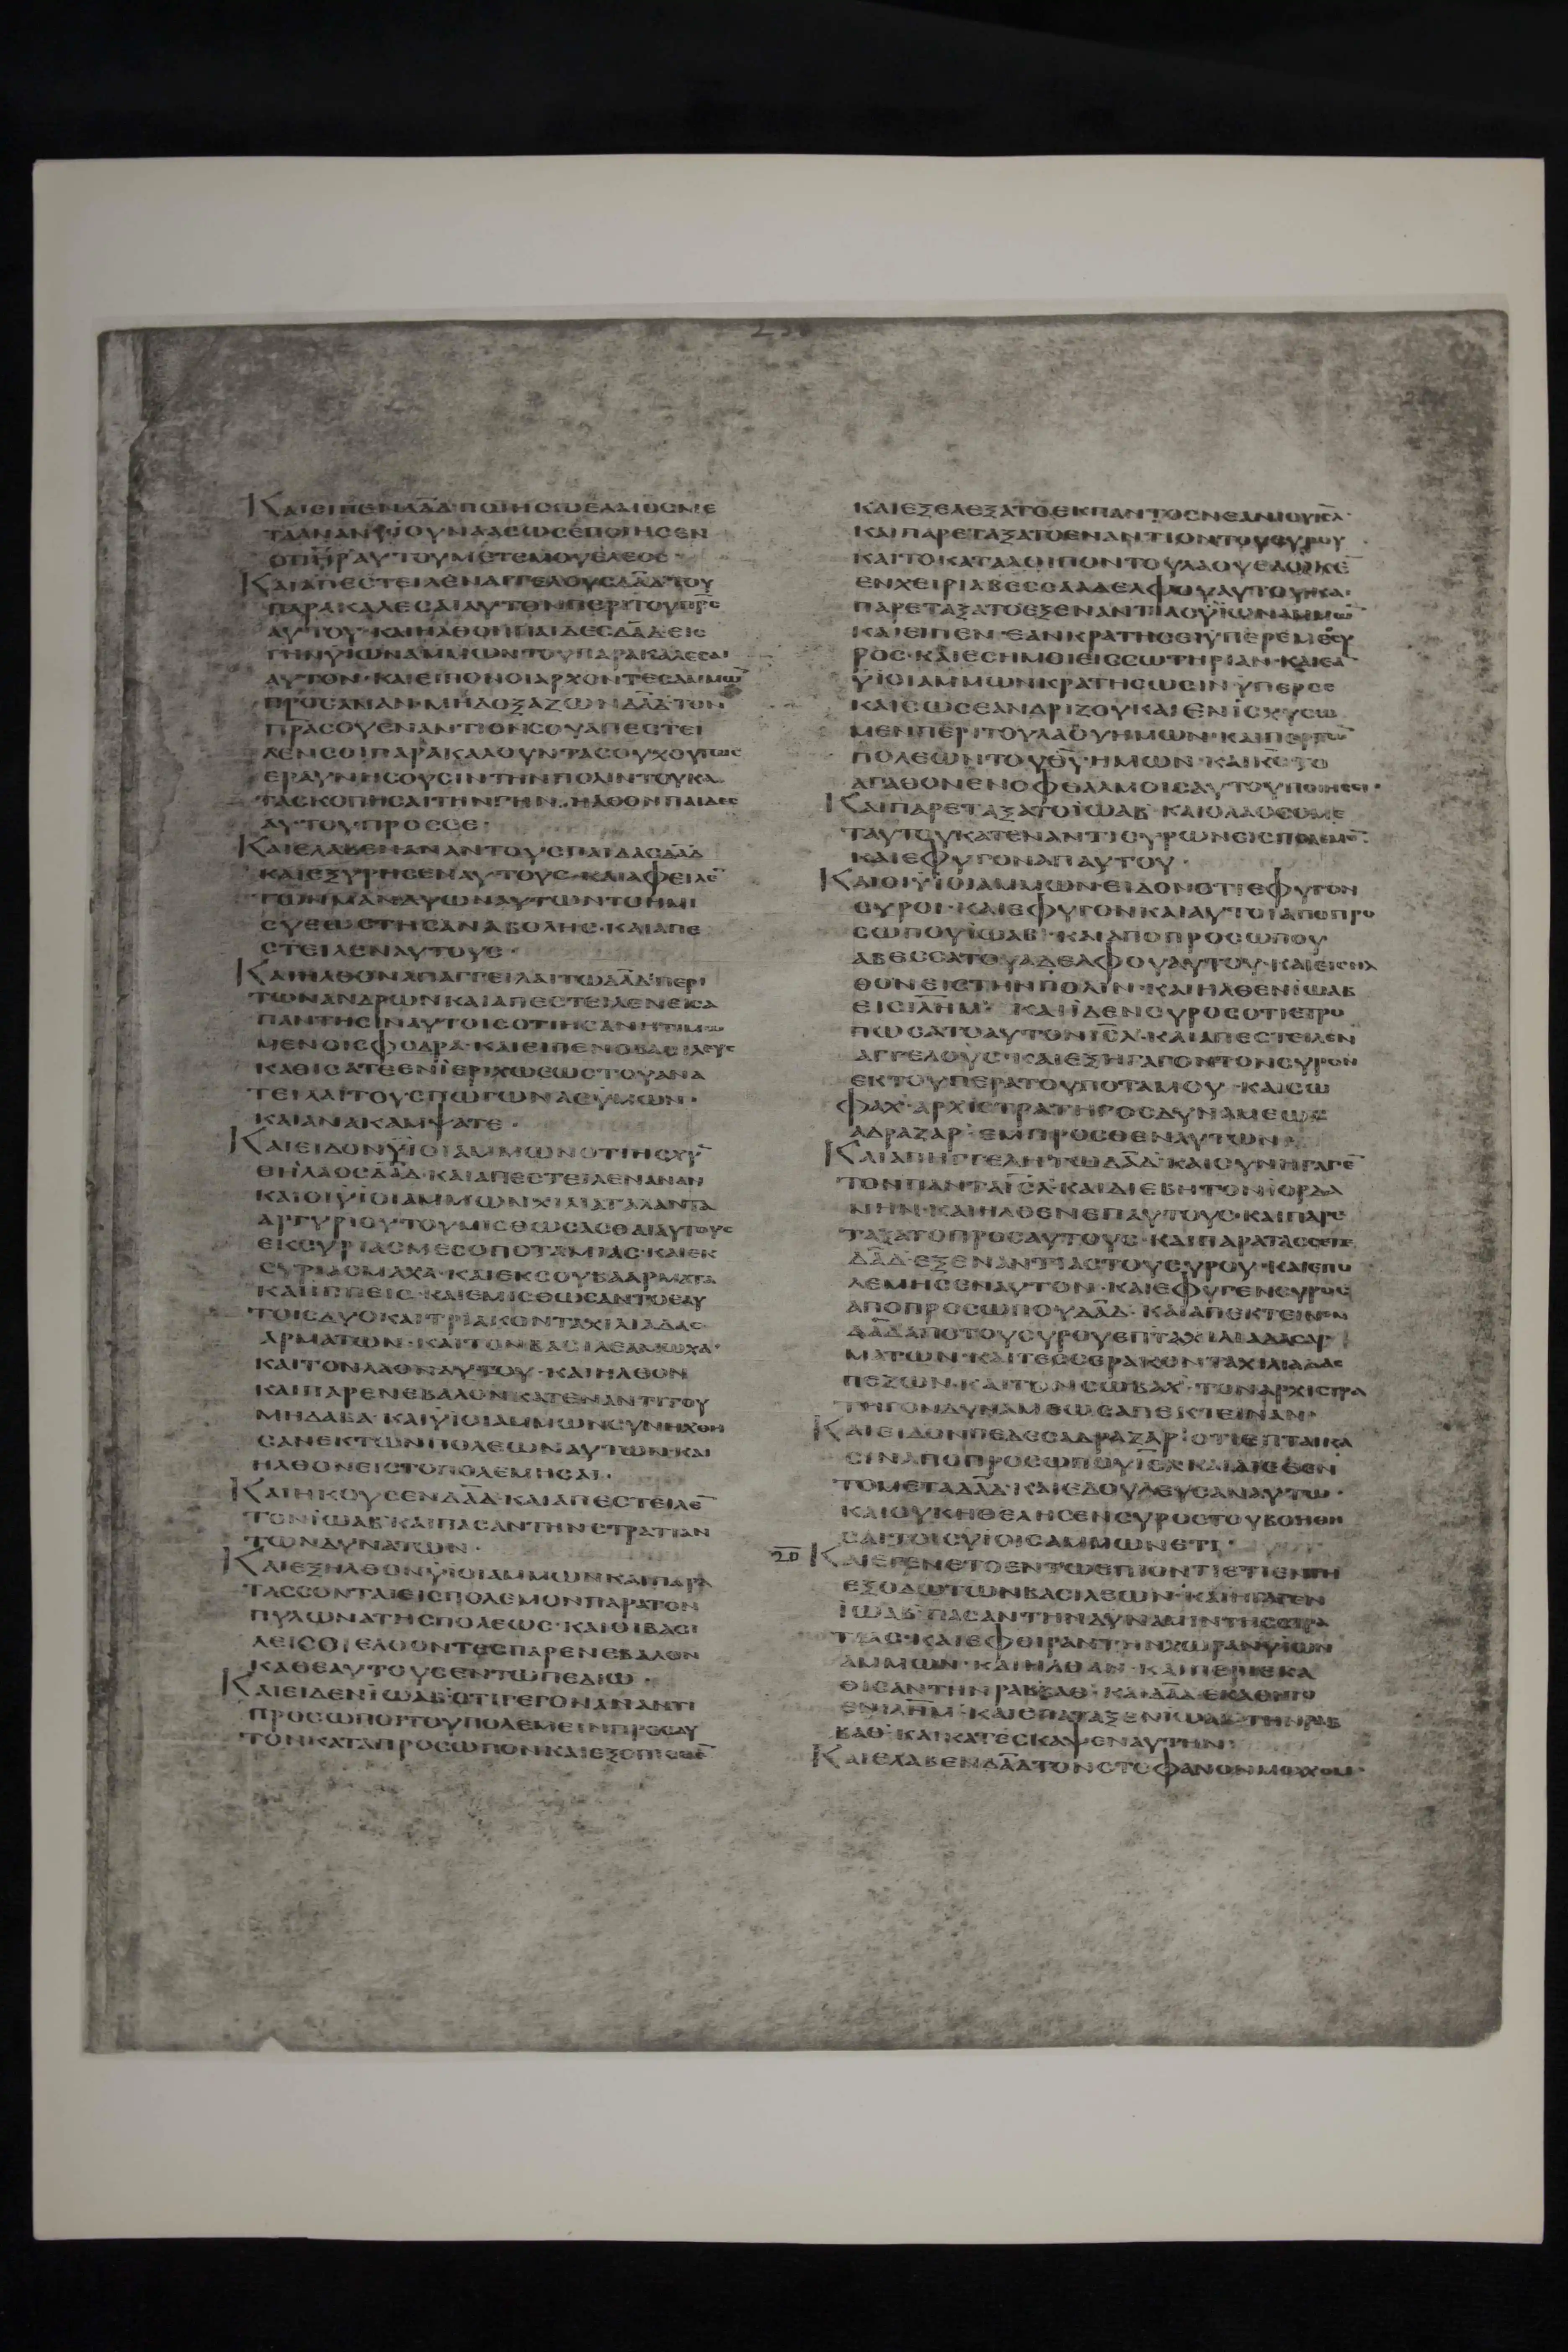 ΚΑΙΕΙΠΕΝΔΑΔ·ΠΟΙΗΣΩΕΛΕΟΣΜΕ
ΤΑΑΝΑΝΫΙΟΥΝΑΑΣΩΣΕΠΟΙΗΣΕΝ
ΟΠΗΡΑΥΤΟΥΜΕΤΕΜΟΥΕΛΕΟΣ
ΚΑΙΑΠΕΣΤΕΙΛΕΝΑΓΓΕΛΟΥΣΔΑΔΤΟΥ
ΠΑΡΑΚΑΛΕΣΑΙΑΥΤΟΝΠΕΡΙΤΟΥΠΡΣ
ΑΥΤΟΥ·ΚΑΙΗΛΘΟΝΠΑΙΔΕΣΔΑΔΕΙΣ
ΓΗΝΫΙΩΝΑΜΜΩΝΤΟΥΠΑΡΑΚΑΛΕΣΑΙ
ΑΥΤΟΝ·ΚΑΙΕΙΠΟΝΟΙΑΡΧΟΝΤΕΣΑΜΜΩ̅
ΠΡΟΣΑΝΑΝ·ΜΗΔΟΞΑΖΩΝΔΑΔΤΟΝ
ΠΡΑΣΟΥΕΝΑΝΤΙΟΝΣΟΥΑΠΕΣΤΕΙ
ΛΕΝΣΟΙΠΑΡΑΚΑΛΟΥΝΤΑΣΟΥΧΟΠΩΣ
ΕΡΑΥΝΗΣΟΥΣΙΝΤΗΝΠΟΛΙΝΤΟΥΚΑ
ΤΑΣΚΟΠΗΣΑΙΤΗΝΓΗΝ·ΗΛΘΟΝΠΑΙΔΕΣ
ΑΥΤΟΥΠΡΟΣΣΕ·
ΚΑΙΕΛΑΒΕΝΑΝΑΝΤΟΥΣΠΑΙΔΑΣΔΑΔ
ΚΑΙΕΞΥΡΗΣΕΝΑΥΤΟΥΣ·ΚΑΙΑΦΕΙΛΕ̅
ΣΥΕΩΣΤΗΣΑΝΑΒΟΛΗΣ·ΚΑΙΑΠΕ
ΣΤΕΙΛΕΝΑΥΤΟΥΣ·
ΚΑΙΗΛΘΟΝΑΠΑΓΓΕΙΛΑΙΤΩΔΑΔΠΕΡΙ
ΤΩΝΑΝΔΡΩΝΚΑΙΑΠΕΣΤΕΙΛΕΝΕΙΣΑ
ΠΑΝΤΗΣΙΝΑΥΤΟΙΣΟΤΙΗΣΑΝΗΤΙΜΩ
ΜΕΝΟΙΣΦΟΔΡΑ·ΚΑΙΕΙΠΕΝΟΒΑΣΙΛΕΥΣ
ΚΑΘΙΣΑΤΕΕΝΪΕΡΙΧΩΕΩΣΤΟΥΑΝΑ
ΤΕΙΛΑΙΤΟΥΣΠΩΓΩΝΑΣΫΜΩΝ·
ΚΑΙΑΝΑΚΑΜΨΑΤΕ·
ΚΑΙΕΙΔΟΝΫΙΟΙΑΜΜΩΝΟΤΙΗΣΧΥ̅
ΘΗΛΑΟΣΔΑΔ·ΚΑΙΑΠΕΣΤΕΙΛΕΝΑΝΑΝ
ΚΑΙΟΙΫΙΟΙΑΜΜΩΝΧΙΛΙΑΤΑΛΑΝΤΑ
ΑΡΓΥΡΙΟΥΤΟΥΜΙΣΘΩΣΑΣΘΑΙΑΥΤΟΥΣ
ΕΚΣΥΡΙΑΣΜΕΣΟΠΟΤΑΜΙΑΣ·ΚΑΙΕΚ
ΣΥΡΙΑΣΜΑΧΑ·ΚΑΙΕΚΣΟΥΒΑΑΡΜΑΤΑ
ΚΑΙΙΠΠΕΙΣ·ΚΑΙΕΜΙΣΘΩΣΑΝΤΟΕΑΥ
ΤΟΙΣΔΥΟΚΑΙΤΡΙΑΚΟΝΤΑΧΙΛΙΑΔΑΣ
ΑΡΜΑΤΩΝ·ΚΑΙΤΟΝΒΑΣΙΛΕΑΜΩΧΑ·
ΚΑΙΤΟΝΛΑΟΝΑΥΤΟΥ·ΚΑΙΗΛΘΟΝ
ΚΑΙΠΑΡΕΝΕΒΑΛΟΝΚΑΤΕΝΑΝΤΙΤΟΥ
ΜΗΔΑΒΑ·ΚΑΙΫΙΟΙΑΜΜΩΝΣΥΝΗΧΘΗ
ΣΑΝΕΚΤΩΝΠΟΛΕΩΝΑΥΤΩΝ·ΚΑΙ
ΗΛΘΟΝΕΙΣΤΟΠΟΛΕΜΗΣΑΙ·
ΚΑΙΗΚΟΥΣΕΝΔΑΔ·ΚΑΙΑΠΕΣΤΕΙΛΕ̅
ΤΟΝΪΩΑΒ·ΚΑΙΠΑΣΑΝΤΗΝΣΤΡΑΤΙΑΝ
ΤΩΝΔΥΝΑΤΩΝ·
ΚΑΙΕΞΗΛΘΟΝΫΙΟΙΑΜΜΩΝΚΑΙΠΑΡΑ
ΤΑΣΣΟΝΤΑΙΕΙΣΠΟΛΕΜΟΝΠΑΡΑΤΟΝ
ΠΥΛΩΝΑΤΗΣΠΟΛΕΩΣ·ΚΑΙΟΙΒΑΣΙ
ΛΕΙΣΟΙΕΛΘΟΝΤΕΣΠΑΡΕΝΕΒΑΛΟΝ
ΚΑΘΕΑΥΤΟΥΣΕΝΤΩΠΕΔΙΩ·
ΚΑΙΕΙΔΕΝΪΩΑΒ·ΟΤΙΓΕΓΟΝΑΝΑΝΤΙ
ΠΡΟΣΩΠΟΙΤΟΥΠΟΛΕΜΕΙΝΠΡΟΣΑΥ
ΤΟΝΚΑΤΑΠΡΟΣΩΠΟΝΚΑΙΕΞΟΠΙΣΘΕ̅
ΚΑΙΕΞΕΛΕΞΑΤΟΕΚΠΑΝΤΟΣΝΕΑΝΙΟΥΙΣΛ·
ΚΑΙΠΑΡΕΤΑΞΑΤΟΕΝΑΝΤΙΟΝΤΟΥΣΥΡΟΥ
ΚΑΙΤΟΚΑΤΑΛΟΙΠΟΝΤΟΥΛΑΟΥΕΔΩΚΕ̅
ΕΝΧΕΙΡΙΑΒΕΣΣΑΑΔΕΛΦΟΥΑΥΤΟΥ·ΚΑΙ
ΠΑΡΕΤΑΞΑΤΟΕΞΕΝΑΝΤΙΑΣΫΙΩΝΑΜΜΩ̅
ΚΑΙΕΙΠΕΝ·ΕΑΝΚΡΑΤΗΣΕΙΫΠΕΡΕΜΕΣΥ
ΡΟΣ·ΚΑΙΕΣΗΜΟΙΕΙΣΣΩΤΗΡΙΑΝ·ΚΑΙΕΑ̅
ΫΙΟΙΑΜΜΩΝΚΡΑΤΗΣΩΣΙΝΫΠΕΡΣΕ
ΚΑΙΣΩΣΕΑΝΔΡΙΖΟΥΚΑΙΕΝΙΣΧΥΣΩ
ΜΕΝΠΕΡΙΤΟΥΛΑΟΥΗΜΩΝ·ΚΑΙΠΕΡΙΤΩ̅
ΠΟΛΕΩΝΤΟΥΘΥ·ΗΜΩΝ·ΚΑΙΚΣΤΟ
ΑΓΑΘΟΝΕΝΟΦΘΑΛΜΟΙΣΑΥΤΟΥΠΟΙΗΣΕΙ·
ΚΑΙΠΑΡΕΤΑΞΑΤΟΪΩΑΒ·ΚΑΙΟΛΑΟΣΟΜΕ
ΤΑΥΤΟΥΚΑΤΕΝΑΝΤΙΣΥΡΩΝΕΙΣΠΟΛΕΜΟ̅·
ΚΑΙΕΦΥΓΟΝΑΠΑΥΤΟΥ·
ΚΑΙΟΙΫΙΟΙΑΜΜΩΝ·ΕΙΔΟΝΟΤΙΕΦΥΓΟΝ
ΣΥΡΟΙ·ΚΑΙΕΦΥΓΟΝΚΑΙΑΥΤΟΙΑΠΟΠΡΟ
ΣΩΠΟΥΪΩΑΒ·ΚΑΙΑΠΟΠΡΟΣΩΠΟΥ
ΑΒΕΣΣΑΤΟΥΑΔΕΛΦΟΥΑΥΤΟΥ·ΚΑΙΕΙΣΗΛ
ΘΟΝΕΙΣΤΗΝΠΟΛΙΝ·ΚΑΙΗΛΘΕΝΪΩΑΒ
ΕΙΣΙΛΗΜ·ΚΑΙΪΔΕΝΣΥΡΟΣΟΤΙΕΤΡΟ
ΠΩΣΑΤΟΑΥΤΟΝΙΣΛ·ΚΑΙΑΠΕΣΤΕΙΛΕΝ
ΑΓΓΕΛΟΥΣ·ΚΑΙΕΞΗΓΑΓΟΝΤΟΝΣΥΡΟΝ
ΕΚΤΟΥΠΕΡΑΤΟΥΠΟΤΑΜΟΥ·ΚΑΙΣΩ
ΦΑΧ·ΑΡΧΙΣΤΡΑΤΗΓΟΣΔΥΝΑΜΕΩΣ
ΑΔΡΑΖΑΡ·ΕΜΠΡΟΣΘΕΝΑΥΤΩΝ·
ΚΑΙΑΠΗΓΓΕΛΗΤΩΔΑΔ·ΚΑΙΣΥΝΗΓΑΓΕ̅
ΤΟΝΠΑΝΤΑΙΣΛ·ΚΑΙΔΙΕΒΗΤΟΝΪΟΡΔΑ
ΝΗΝ·ΚΑΙΗΛΘΕΝΕΠΑΥΤΟΥΣ·ΚΑΙΠΑΡΕ
ΤΑΞΑΤΟΠΡΟΣΑΥΤΟΥΣ·ΚΑΙΠΑΡΑΤΑΣΣΕΤΑΙ
ΔΑΔ·ΕΞΕΝΑΝΤΙΑΣΤΟΥΣΥΡΟΥ·ΚΑΙΕΠΟ
ΛΕΜΗΣΕΝΑΥΤΟΝ·ΚΑΙΕΦΥΓΕΝΣΥΡΟΣ
ΑΠΟΠΡΟΣΩΠΟΥΔΑΔ·ΚΑΙΑΠΕΚΤΕΙΝΕΝ
ΔΑΔΑΠΟΤΟΥΣΥΡΟΥΕΠΤΑΧΙΛΙΑΔΑΣΑΡ
ΜΑΤΩΝ·ΚΑΙΤΕΣΣΕΡΑΚΟΝΤΑΧΙΛΙΑΔΑΣ
ΠΕΖΩΝ·ΚΑΙΤΟΝΣΩΒΑΧ·ΤΟΝΑΡΧΙΣΤΡΑ
ΤΗΓΟΝΔΥΝΑΜΕΩΣΑΠΕΚΤΕΙΝΑΝ·
ΚΑΙΕΙΔΟΝΠΕΔΕΣΑΔΡΑΖΑΡ·ΟΤΙΕΠΤΑΙΚΑ
ΣΙΝΑΠΟΠΡΟΣΩΠΟΥΙΣΛΚΑΙΔΙΕΘΕΝ
ΤΟΜΕΤΑΔΑΔ·ΚΑΙΕΔΟΥΛΕΥΣΑΝΑΥΤΩ·
ΚΑΙΟΥΚΗΘΕΛΗΣΕΝΣΥΡΟΣΤΟΥΒΟΗΘΗ
ΣΑΙΤΟΙΣΫΙΟΙΣΑΜΜΩΝΕΤΙ·
20 ΚΑΙΕΓΕΝΕΤΟΕΝΤΩΕΠΙΟΝΤΙΕΤΙΕΝΤΗ
ΕΞΟΔΩΤΩΝΒΑΣΙΛΕΩΝ·ΚΑΙΗΓΑΓΕΝ
ΪΩΑΒ·ΠΑΣΑΝΤΗΝΔΥΝΑΜΙΝΤΗΣΣΤΡΑ
ΤΙΑΣ·ΚΑΙΕΦΘΙΡΑΝΤΗΝΧΩΡΑΝΫΙΩΝ
ΑΜΜΩΝ·ΚΑΙΗΛΘΑΝ·ΚΑΙΠΕΡΙΕΚΑ
ΘΙΣΑΝΤΗΝΡΑΒΒΑΘ·ΚΑΙΔΑΔ·ΕΚΑΘΗΤΟ
ΕΝΙΛΗΜ·ΚΑΙΕΠΑΤΑΞΕΝΪΩΑΒ·ΤΗΝΡΑΒ
ΒΑΘ·ΚΑΙΚΑΤΕΣΚΑΨΕΝΑΥΤΗΝ·
ΚΑΙΕΛΑΒΕΝΔΑΔΤΟΝΣΤΕΦΑΝΟΝΜΟΛΧΟΜ·